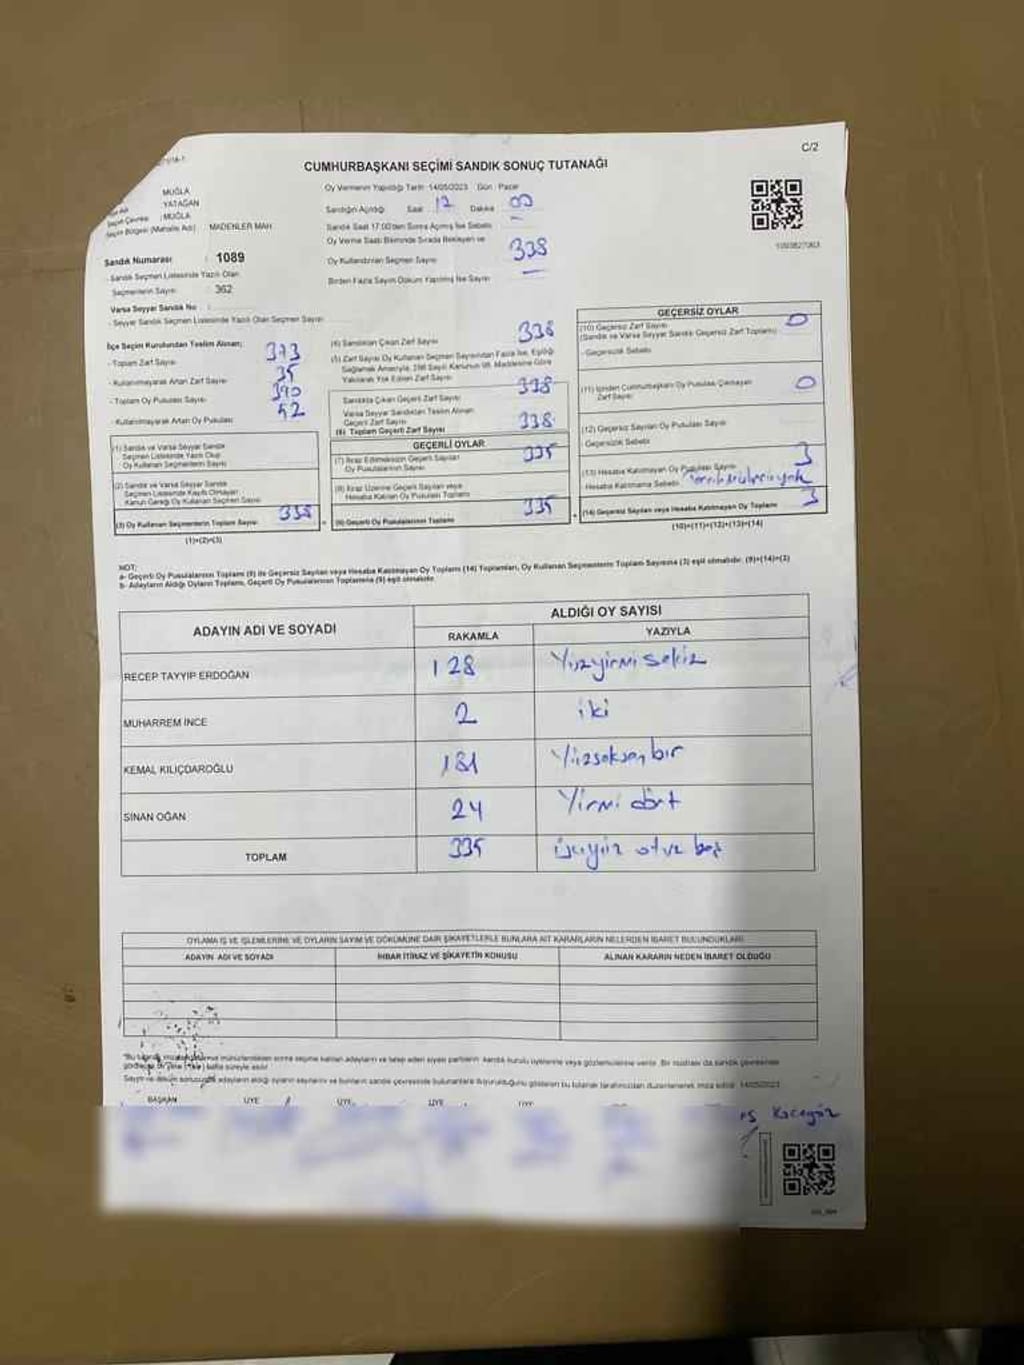 C/2
CUMHURBAŞKANI SEÇİMİ SANDIK SONUÇ TUTANAĞI
MUĞLA
YATAĞAN
Seçim Çevresi : MUĞLA
Seçim Bölgesi (Mahalle Adı) : MADENLER MAH.
Oy Vermenin Yapıldığı Tarih :14/05/2023 Gün : Pazar
Sandığın Açıldığı Saat 17 Dakika 00
Sandık Saat 17.00'den Sonra Açılmış İse Sebebi :
Oy Verme Saati Bitiminde Sırada Bekleyen ve
Oy Kullandırılan Seçmen Sayısı 338
Birden Fazla Sayım Döküm Yapılmış İse Sayısı
Sandık Numarası : 1089
- Sandık Seçmen Listesinde Yazılı Olan
Seçmenlerin Sayısı : 362
Varsa Seyyar Sandık No :
- Seyyar Sandık Seçmen Listesinde Yazılı Olan Seçmen Sayısı
İlçe Seçim Kurulundan Teslim Alınan;
- Toplam Zarf Sayısı 373
- Kullanılmayarak Artan Zarf Sayısı 35
- Toplam Oy Pusulası Sayısı 390
- Kullanılmayarak Artan Oy Pusulası 52
(1) Sandık ve Varsa Seyyar Sandık
Seçmen Listesinde Yazılı Olup
Oy Kullanan Seçmenlerin Sayısı
(2) Sandık ve Varsa Seyyar Sandık
Seçmen Listesinde Kayıtlı Olmayan
Kanun Gereği Oy Kullanan Seçmen Sayısı
(3) Oy Kullanan Seçmenlerin Toplam Sayısı 338
(1)+(2)=(3)
(4) Sandıktan Çıkan Zarf Sayısı 338
(5) Zarf Sayısı Oy Kullanan Seçmen Sayısından Fazla İse, Eşitliği
Sağlamak Amacıyla, 298 Sayılı Kanunun 98. Maddesine Göre
Yakılarak Yok Edilen Zarf Sayısı
Sandıkta Çıkan Geçerli Zarf Sayısı 338
Varsa Seyyar Sandıktan Teslim Alınan
Geçerli Zarf Sayısı
(6) Toplam Geçerli Zarf Sayısı 338
GEÇERLİ OYLAR
(7) İtiraz Edilmeksizin Geçerli Sayılan
Oy Pusulalarının Sayısı 335
(8) İtiraz Üzerine Geçerli Sayılan veya
Hesaba Katılan Oy Pusulası Toplamı
(9) Geçerli Oy Pusulalarının Toplamı 335
GEÇERSİZ OYLAR
(10) Geçersiz Zarf Sayısı 0
(Sandık ve Varsa Seyyar Sandık Geçersiz Zarf Toplamı)
- Geçersizlik Sebebi
(11) İçinden Cumhurbaşkanı Oy Pusulası Çıkmayan
Zarf Sayısı 0
(12) Geçersiz Sayılan Oy Pusulası Sayısı
Geçersizlik Sebebi
(13) Hesaba Katılmayan Oy Pusulası Sayısı 3
Hesaba Katılmama Sebebi
(14) Geçersiz Sayılan veya Hesaba Katılmayan Oy Toplamı 3
(10)+(11)+(12)+(13)=(14)
NOT:
a- Geçerli Oy Pusulalarının Toplamı (9) ile Geçersiz Sayılan veya Hesaba Katılmayan Oy Toplamı (14) Toplamları, Oy Kullanan Seçmenlerin Toplam Sayısına (3) eşit olmalıdır. (9)+(14)=(3)
b- Adayların Aldığı Oyların Toplamı, Geçerli Oy Pusulalarının Toplamına (9) eşit olmalıdır.
ADAYIN ADI VE SOYADI ALDIĞI OY SAYISI
RAKAMLA YAZIYLA
RECEP TAYYIP ERDOĞAN 128 Yüzyirmi sekiz
MUHARREM İNCE 2 iki
KEMAL KILIÇDAROĞLU 181 Yüzseksen bir
SİNAN OĞAN 24 Yirmi dört
TOPLAM 335 üçyüz otuz beş
OYLAMA İŞ VE İŞLEMLERİNE VE OYLARIN SAYIM VE DÖKÜMÜNE DAİR ŞİKAYETLERLE BUNLARA AİT KARARLARIN NELERDEN İBARET BULUNDUKLARI
ADAYIN ADI VE SOYADI İHBAR İTİRAZ VE ŞİKAYETİN KONUSU ALINAN KARARIN NEDEN İBARET OLDUĞU
sonra seçime katılan adayların ve talep eden siyasi partilerin sandık kurulu üyelerine veya gözlemcilerine verilir. Bir nüshası da sandık çevresinde
hafta süreyle asılır.
Sayım ve döküm sonucunda adayların aldığı oyların sayılarını ve bunların sandık çevresinde bulunanlara duyurulduğunu gösteren bu tutanak tarafımızdan düzenlenerek imza edildi. 14/05/2023
BAŞKAN ÜYE ÜYE ÜYE ÜYE